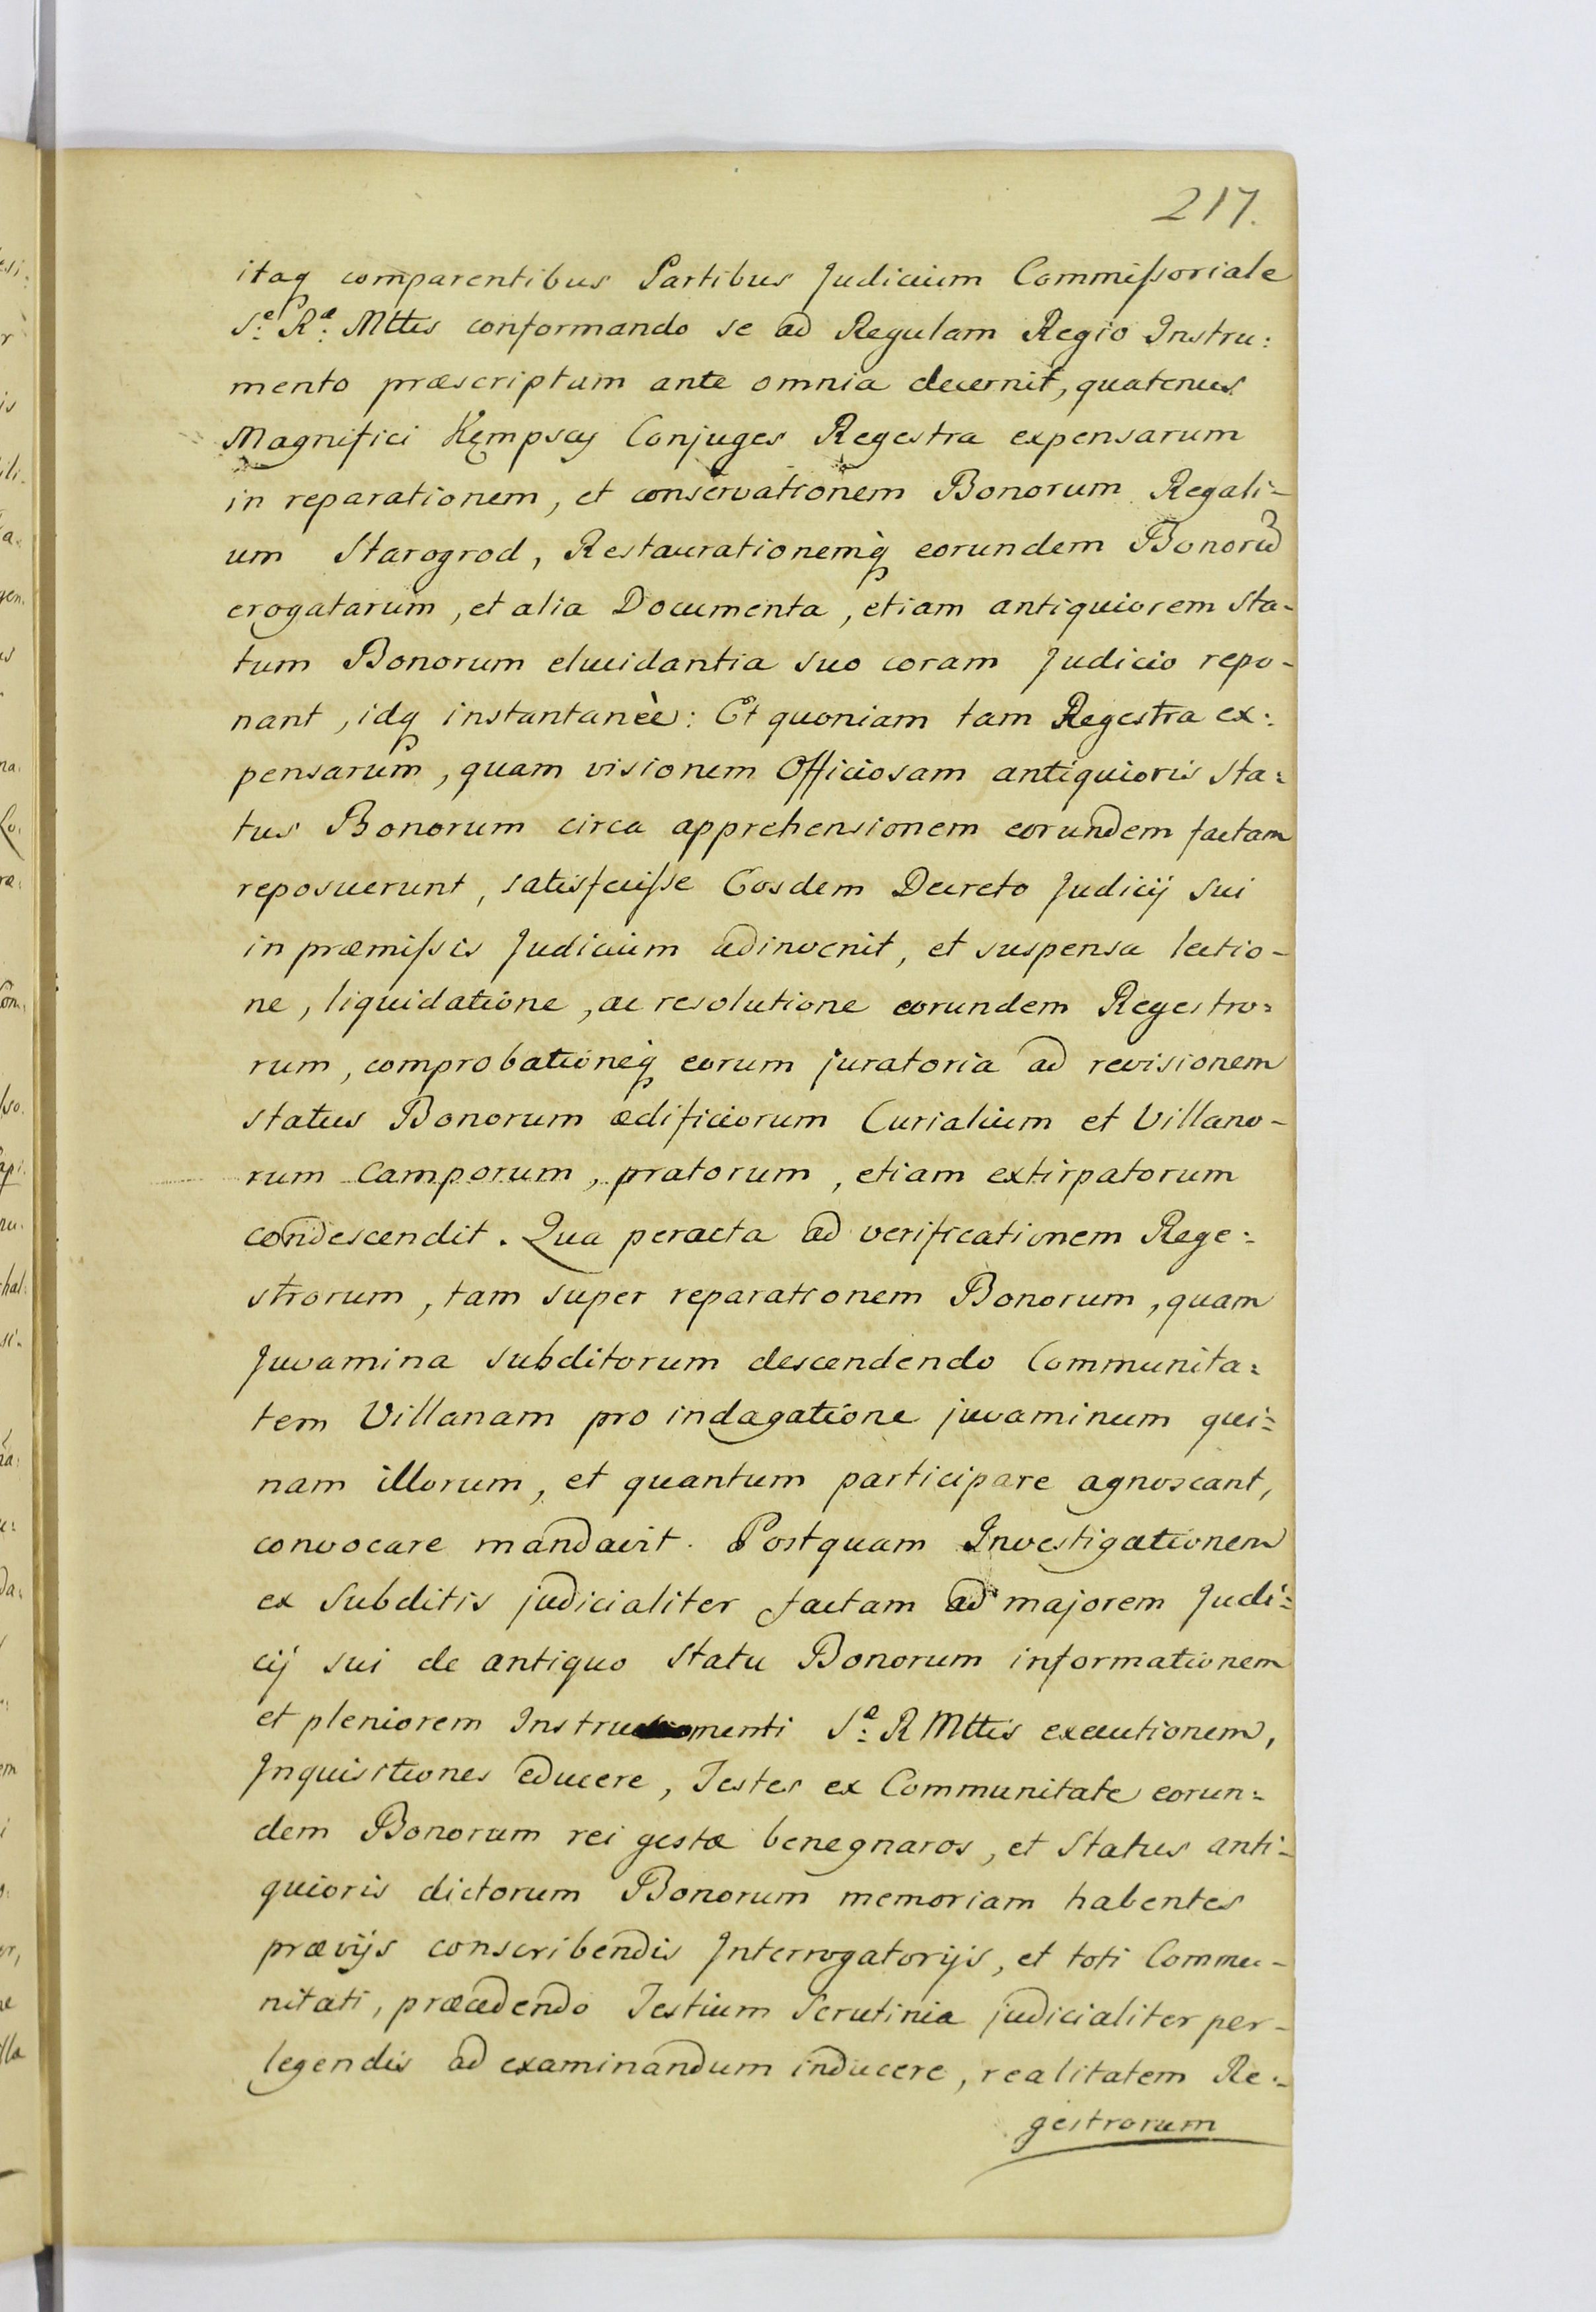 217.
itaq comparentibus Partibus Judicium Commiſsoriale
S:e R:æ Mttis conformando se ad Regulam Regio Instru:
mento præscriptam ante omnia decernit, quatenus
Magnifici Kępscy Conjuges Regestra expensarum
in reparationem, et conservationem Bonorum Regali-
um Starogrod, Restaurationemq eorundem Bonorū
erogatarum, et alia Documenta, etiam antiquiorem Sta-
tum Bonorum elucidantia suo coram Judicio repo-
nant, idq instantaneè: Et quoniam tam Regestra ex:
pensarum, quam visionem Officiosam antiquioris Sta:
tus Bonorum circa apprehensionem eorundem factam
reposuerunt, satisfeciſse Eosdem Decreto Judicij Sui
in præmiſsis Judicium adinvenit, et suspensa lectio-
ne, liquidatione, ac resolutione eorundem Regestro:
rum, comprobationeq eorum juratoria ad revisionem
status Bonorum ædificiorum Curialium et Villano-
rum Camporum, pratorum, etiam extirpatorum
condescendit. Qua peracta ad verificationem Rege:
strorum, tam super reparationem Bonorum, quam
Juvamina subditorum descendendo Communita:
tem Villanam pro indagatione juvaminum qui:
nam illorum, et quantum participare agnoscant,
convocare mandavit. Postquam Investigationem
ex Subditis judicialiter factam ad majorem Judi:
cij sui de antiquo Statu Bonorum informationem
et pleniorem Instrumenti S:æ R Mttis executionem,
Inquisitiones educere, Testes ex Communitate eorun:
dem Bonorum rei gestæ benegnaros, et Status anti-
quioris dictorum Bonorum memoriam habentes
prævijs conscribendis Interrogatorijs, et toti Commu-
nitati, præcedendo Testium Scrutinia judicialiter per-
legendis ad examinandum inducere, realitatem Re:
gestrorum